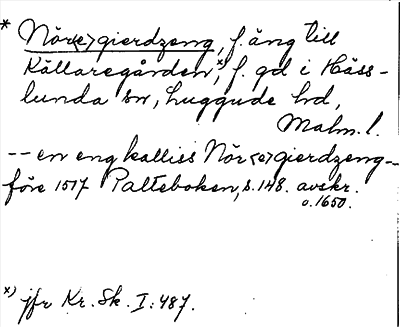 * Nör<e>gierdzeng, f. äng till
Källaregården,x) f. gd i Häss-
lunda sn, Luggude hd,
Malm. l.
-- en eng kalliss Nör<e>gierdzeng --
före 1517 Palteboken, s. 148. avskr.
o. 1650.
x) jfr Kr. Sk. I: 487.